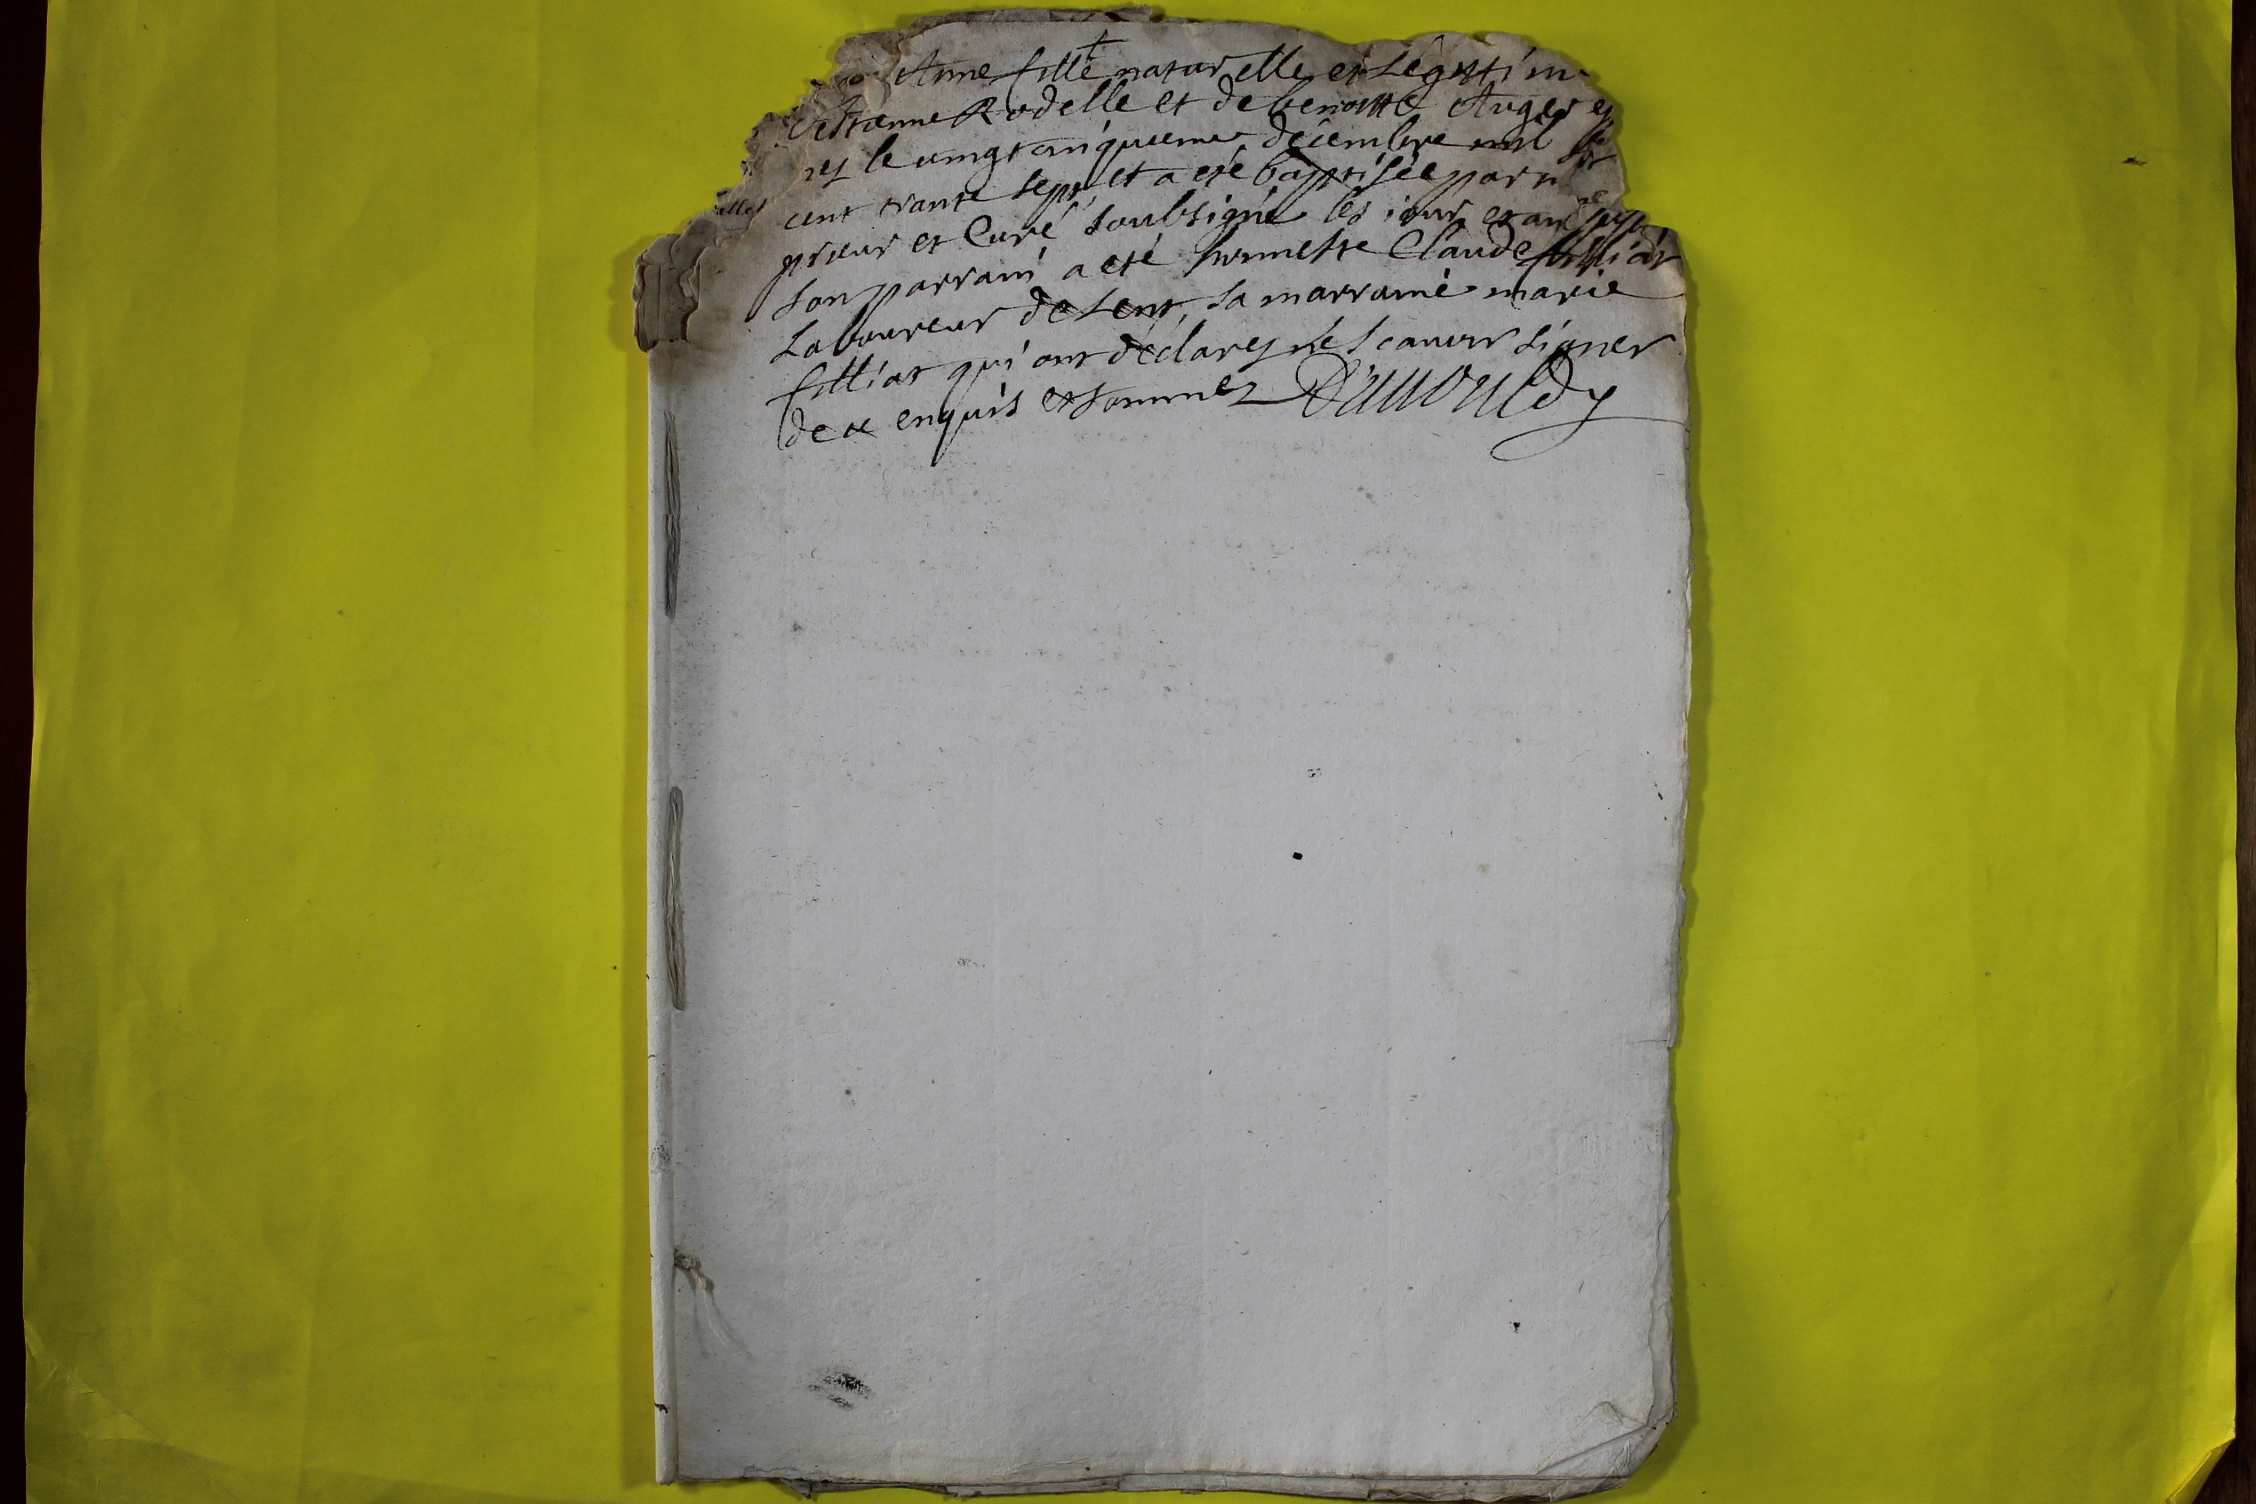 Anne fille naturelle et Legitti
Estienne Rodelle et de benoitte Auger
nez le vingt cinquieme décembre mil
cent trante sept, et a eté baptisée par
prieur et Curé soubsigné les jour et an
son parrain a eté honneste Claude filliat
Laboureur de Lent, sa marraine marie
filliat qui ont déclarez ne scauoir signer
de ce enquis et sommez